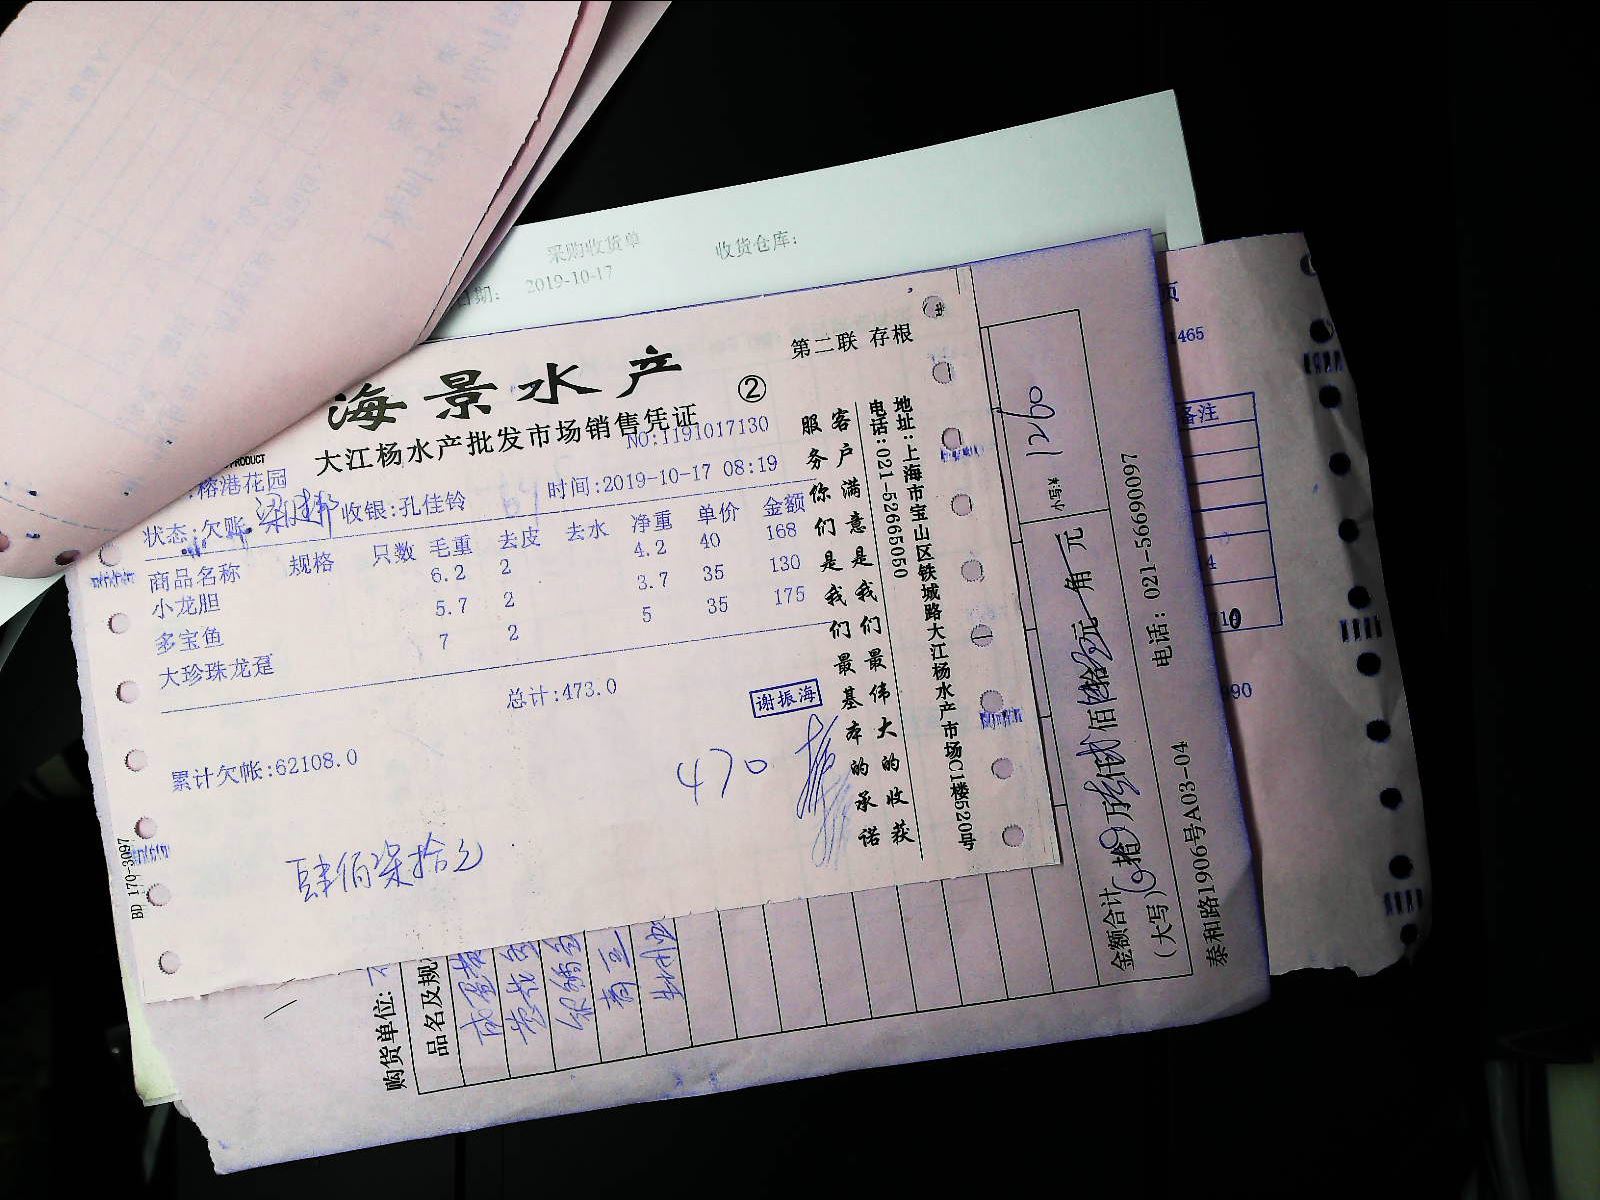 采购收货单
收货仓库:
日期: 2019-10-17
第二联 存根
海景水产 ②
大江杨水产批发市场销售凭证
PRODUCT
NO:1191017130
:榕港花园
时间:2019-10-17 08:19
状态:欠账 收银:孔佳铃
商品名称 规格 只数 毛重 去皮 去水 净重 单价 金额
小龙胆 6.2 2 4.2 40 168
多宝鱼 5.7 2 3.7 35 130
大珍珠龙趸 7 2 5 35 175
总计:473.0
谢振海
累计欠帐:62108.0
470
肆佰柒拾元
BD 170-3097
客户满意是我们最伟大的收获
服务你们是我们最基本的承诺
地址:上海市宝山区铁城路大江杨水产市场C1楼520号
电话:021-52665050
购货单位:
品名及规
金额合计
(大写) 拾 万 仟 佰 拾 元 角 元
小写¥ 1260
泰和路1906号A03-04
电话: 021-56690097
页
1465
备注
4
710
990